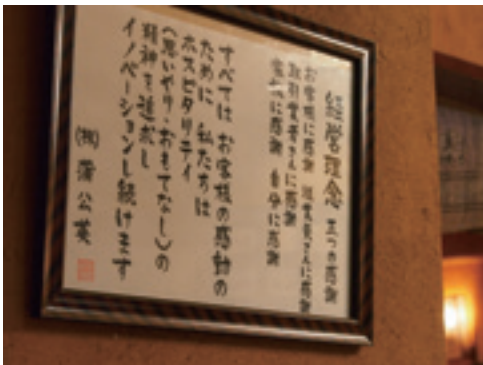 経営理念 五つの感謝
お客様に感謝 従業員さんに感謝
取引業者さんに感謝
家族に感謝 自分に感謝
すべては お客様の感動の
ために 私たちは
ホスピタリティ
(思いやり・おもてなし)の
精神を追求し
イノベーションし続けます
㈱ 蒲公英